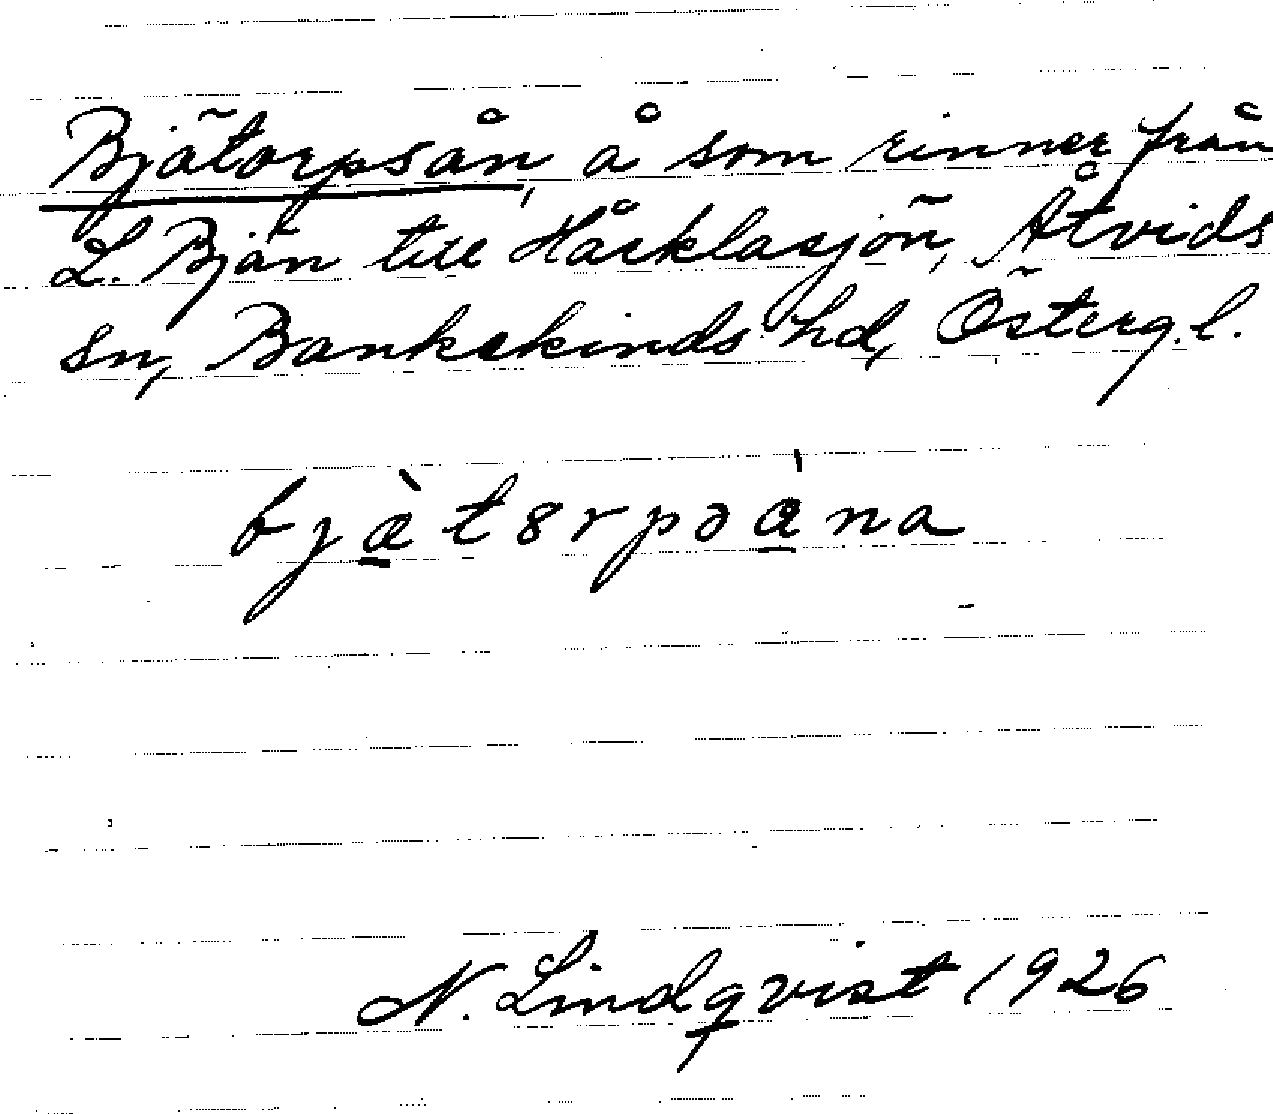 Bjätorpsån, å som rinner från
L. Bjän till Håcklasjön, Åtvids
sn, Bankekinds hd, Österg. l.
N. Lindqvist 1926